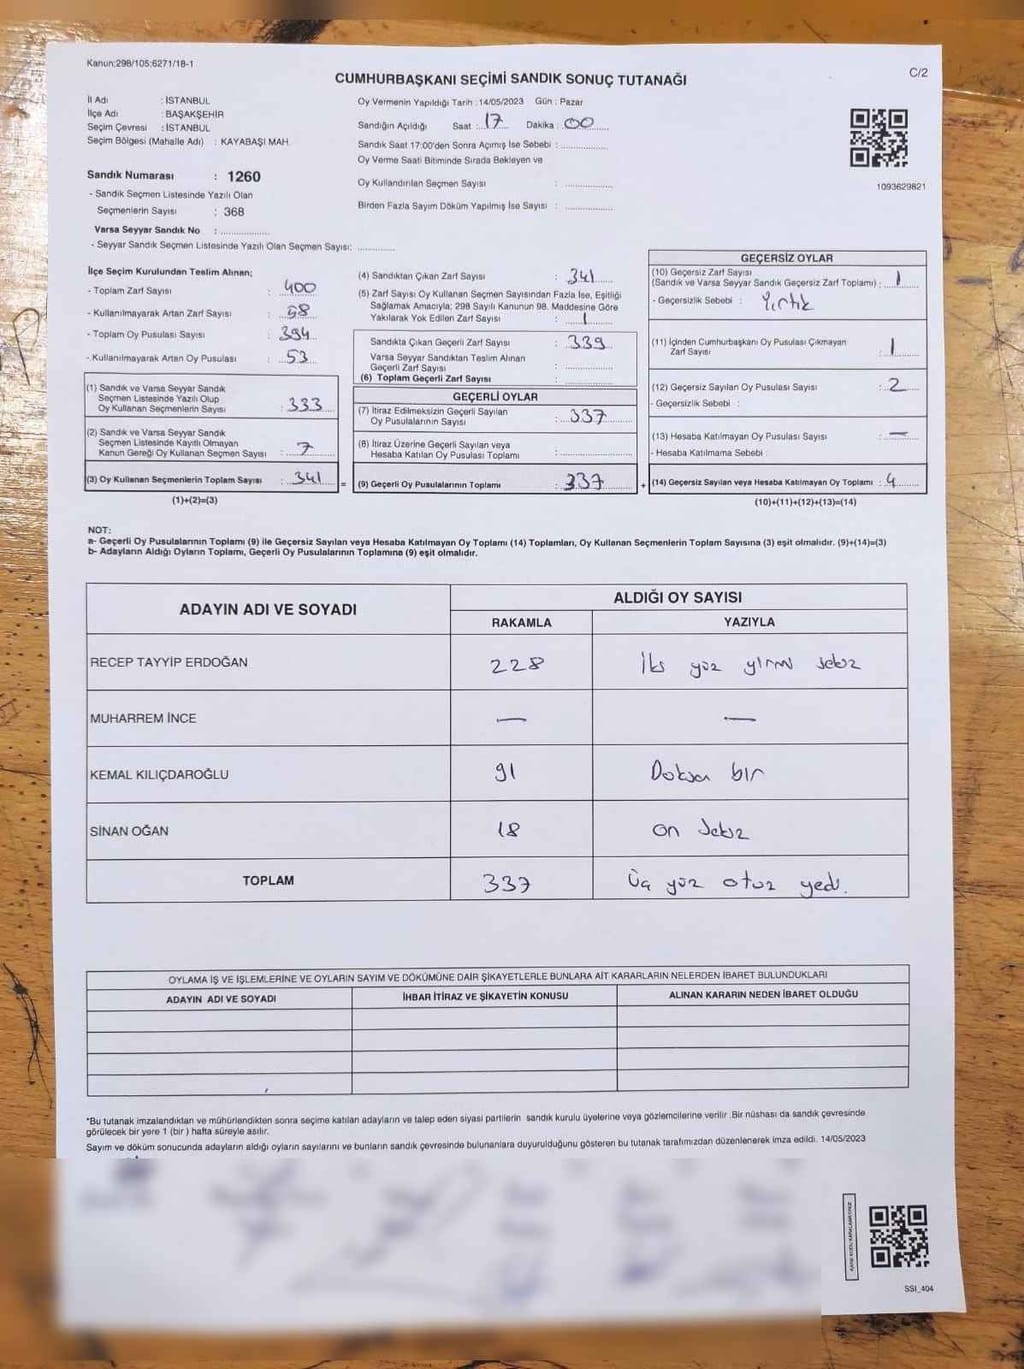 Kanun:298/105;6271/18-1
CUMHURBAŞKANI SEÇİMİ SANDIK SONUÇ TUTANAĞI
C/2
İl Adı : İSTANBUL
İlçe Adı : BAŞAKŞEHİR
Seçim Çevresi : İSTANBUL
Seçim Bölgesi (Mahalle Adı) : KAYABAŞI MAH.
Sandık Numarası : 1260
- Sandık Seçmen Listesinde Yazılı Olan
Seçmenlerin Sayısı : 368
Varsa Seyyar Sandık No : ..............
- Seyyar Sandık Seçmen Listesinde Yazılı Olan Seçmen Sayısı: ............
Oy Vermenin Yapıldığı Tarih : 14/05/2023 Gün : Pazar
Sandığın Açıldığı Saat : 17 Dakika : 00
Sandık Saat 17:00'den Sonra Açımış İse Sebebi : ..............
Oy Verme Saati Bitiminde Sırada Bekleyen ve
Oy Kullandırılan Seçmen Sayısı : ..............
Birden Fazla Sayım Döküm Yapılmış İse Sayısı : ..............
1093629821
İlçe Seçim Kurulundan Teslim Alınan;
- Toplam Zarf Sayısı : 400
- Kullanılmayarak Artan Zarf Sayısı : 58
- Toplam Oy Pusulası Sayısı : 394
- Kullanılmayarak Artan Oy Pusulası : 53
(1) Sandık ve Varsa Seyyar Sandık
Seçmen Listesinde Yazılı Olup
Oy Kullanan Seçmenlerin Sayısı : 333
(2) Sandık ve Varsa Seyyar Sandık
Seçmen Listesinde Kayıtlı Olmayan
Kanun Gereği Oy Kullanan Seçmen Sayısı : 7
(3) Oy Kullanan Seçmenlerin Toplam Sayısı : 341
(1)+(2)=(3)
(4) Sandıktan Çıkan Zarf Sayısı : 341
(5) Zarf Sayısı Oy Kullanan Seçmen Sayısından Fazla İse, Eşitliği
Sağlamak Amacıyla; 298 Sayılı Kanunun 98. Maddesine Göre
Yakılarak Yok Edilen Zarf Sayısı : 1
Sandıkta Çıkan Geçerli Zarf Sayısı : 339
Varsa Seyyar Sandıktan Teslim Alınan
Geçerli Zarf Sayısı : ..............
(6) Toplam Geçerli Zarf Sayısı : ..............
GEÇERLİ OYLAR
(7) İtiraz Edilmeksizin Geçerli Sayılan
Oy Pusulalarının Sayısı : 337
(8) İtiraz Üzerine Geçerli Sayılan veya
Hesaba Katılan Oy Pusulası Toplamı : ..............
= (9) Geçerli Oy Pusulalarının Toplamı : 337 +
GEÇERSİZ OYLAR
(10) Geçersiz Zarf Sayısı
(Sandık ve Varsa Seyyar Sandık Geçersiz Zarf Toplamı) : 1
- Geçersizlik Sebebi : Yırtık
(11) İçinden Cumhurbaşkanı Oy Pusulası Çıkmayan
Zarf Sayısı : 1
(12) Geçersiz Sayılan Oy Pusulası Sayısı : 2
- Geçersizlik Sebebi :
(13) Hesaba Katılmayan Oy Pusulası Sayısı : —
- Hesaba Katılmama Sebebi :
(14) Geçersiz Sayılan veya Hesaba Katılmayan Oy Toplamı : 4
(10)+(11)+(12)+(13)=(14)
NOT:
a- Geçerli Oy Pusulalarının Toplamı (9) ile Geçersiz Sayılan veya Hesaba Katılmayan Oy Toplamı (14) Toplamları, Oy Kullanan Seçmenlerin Toplam Sayısına (3) eşit olmalıdır. (9)+(14)=(3)
b- Adayların Aldığı Oyların Toplamı, Geçerli Oy Pusulalarının Toplamına (9) eşit olmalıdır.
ADAYIN ADI VE SOYADI ALDIĞI OY SAYISI
RAKAMLA YAZIYLA
RECEP TAYYİP ERDOĞAN 228 İki yüz yirmi sekiz
MUHARREM İNCE — —
KEMAL KILIÇDAROĞLU 91 Doksan bir
SİNAN OĞAN 18 on sekiz
TOPLAM 337 Üç yüz otuz yedi.
OYLAMA İŞ VE İŞLEMLERİNE VE OYLARIN SAYIM VE DÖKÜMÜNE DAİR ŞİKAYETLERLE BUNLARA AİT KARARLARIN NELERDEN İBARET BULUNDUKLARI
ADAYIN ADI VE SOYADI İHBAR İTİRAZ VE ŞİKAYETİN KONUSU ALINAN KARARIN NEDEN İBARET OLDUĞU
*Bu tutanak imzalandıktan ve mühürlendikten sonra seçime katılan adayların ve talep eden siyasi partilerin sandık kurulu üyelerine veya gözlemcilerine verilir .Bir nüshası da sandık çevresinde
görülecek bir yere 1 (bir ) hafta süreyle asılır.
Sayım ve döküm sonucunda adayların aldığı oyların sayılarını ve bunların sandık çevresinde bulunanlara duyurulduğunu gösteren bu tutanak tarafımızdan düzenlenerek imza edildi. 14/05/2023
SSI_404